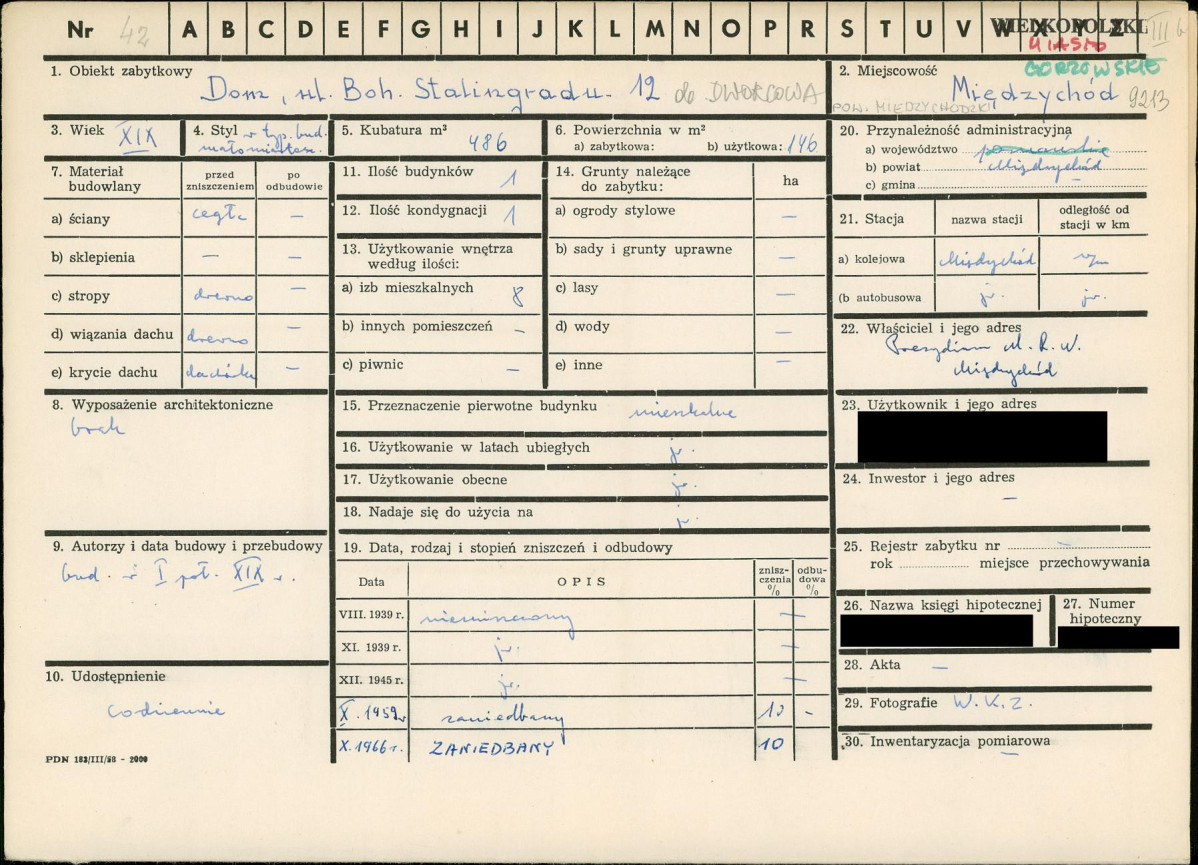 Nr 42 A B C D E F G H I J K L M N O P R S T U V W X Y Z III b
WIELKOPOLSKI
MIASTO
GORZOWSKIE
1. Obiekt zabytkowy
Dom, ul. Boh. Stalingradu. 12 DWORCOWA
2. Miejscowość
Międzychód 9213
POW. MIĘDZYCHODZKI
3. Wiek XIX
4. Styl w typ. bud. małomiastecz.
5. Kubatura m³ 486
6. Powierzchnia w m²
a) zabytkowa: b) użytkowa: 146
20. Przynależność administracyjną
a) województwo poznańskie
b) powiat Międzychód
c) gmina
7. Materiał budowlany
przed zniszczeniem
po odbudowie
a) ściany cegła —
b) sklepienia — —
c) stropy drewno —
d) wiązania dachu drewno —
e) krycie dachu dachówka —
11. Ilość budynków 1
12. Ilość kondygnacji 1
13. Użytkowanie wnętrza
według ilości:
a) izb mieszkalnych 8
b) innych pomieszczeń -
c) piwnic —
14. Grunty należące
do zabytku: ha
a) ogrody stylowe —
b) sady i grunty uprawne —
c) lasy —
d) wody —
e) inne —
21. Stacja nazwa stacji odległość od stacji w km
a) kolejowa Międzychód
(b autobusowa jw. jw.
22. Właściciel i jego adres
Prezydium M. R. N.
Międzychód
8. Wyposażenie architektoniczne
brak
15. Przeznaczenie pierwotne budynku mieszkalne
16. Użytkowanie w latach ubiegłych jw.
17. Użytkowanie obecne jw.
18. Nadaje się do użycia na jw.
23. Użytkownik i jego adres
24. Inwestor i jego adres
—
9. Autorzy i data budowy i przebudowy
bud. w I poł. XIX w.
19. Data, rodzaj i stopień zniszczeń i odbudowy
Data OPIS znisz-czenia % odbu-dowa %
VIII. 1939 r. niezniszczony —
XI. 1939 r. jw. —
XII. 1945 r. jw. —
X. 1959 r. zaniedbany 10 -
X. 1966 r. ZANIEDBANY 10
25. Rejestr zabytku nr —
rok miejsce przechowywania
26. Nazwa księgi hipotecznej
27. Numer hipoteczny
28. Akta —
29. Fotografie W.K.Z.
30. Inwentaryzacja pomiarowa
10. Udostępnienie
codziennie
PDN 183/III/58 - 2000